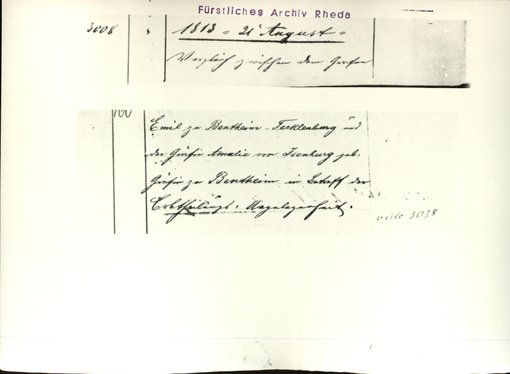 Fürstliches Archiv Rheda
3008 1813 - 21 August -
Vergleich zwischen dem Grafen
Emil zu Bentheim-Tecklenburg und
der Gräfin Amalie von Isenburg geb.
Gräfin zu Bentheim in Betreff der
Erbtheilungs-Angelegenheit.
vide 3038